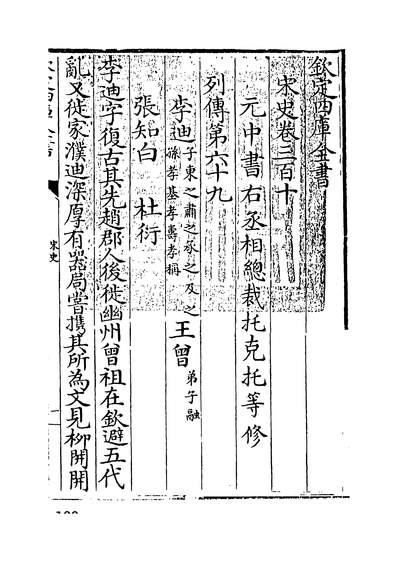 欽定四庫全書
宋史卷三百十
元中書右丞相總裁托克托等修
列傳第六十九
李迪子東之肅之承之及之孫孝基孝壽孝稱王曾弟子融
張知白 杜衍
李迪字復古其先趙郡人後徙幽州曾祖在欽避五代
亂又徙家濮迪深厚有器局嘗攜其所為文見柳開開
宋史